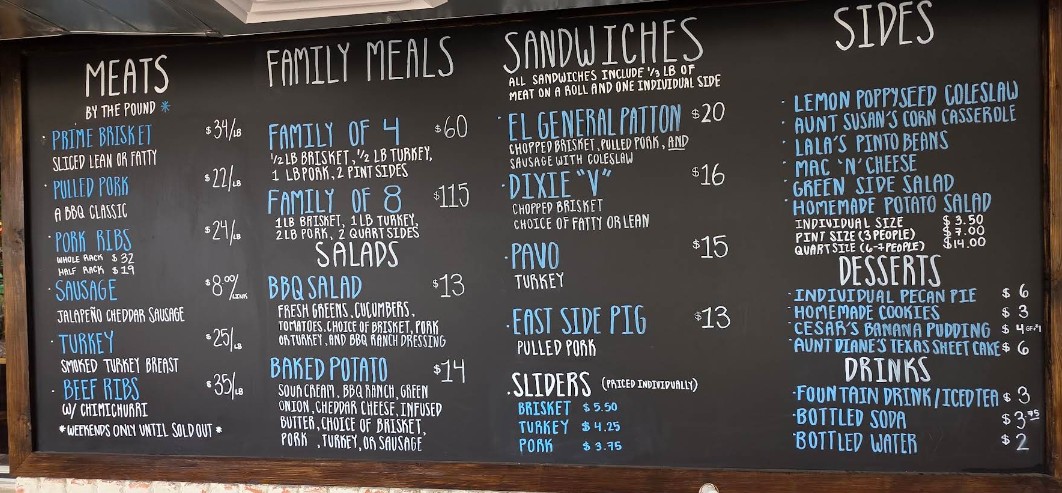 MEATS
BY THE POUND *
· PRIME BRISKET $34/LB
SLICED LEAN OR FATTY
· PULLED PORK $22/LB
A BBQ CLASSIC
· PORK RIBS $24/LB
WHOLE RACK $32
HALF RACK $19
· SAUSAGE $8.00/LINK
JALAPEÑO CHEDDAR SAUSAGE
· TURKEY $25/LB
SMOKED TURKEY BREAST
· BEEF RIBS $35/LB
W/ CHIMICHURRI
*WEEKENDS ONLY UNTIL SOLD OUT *
FAMILY MEALS
FAMILY OF 4 $60
1/2 LB BRISKET, 1/2 LB TURKEY,
1 LB PORK, 2 PINT SIDES
FAMILY OF 8 $115
1 LB BRISKET, 1 LB TURKEY,
2 LB PORK, 2 QUART SIDES
SALADS
BBQ SALAD $13
FRESH GREENS, CUCUMBERS,
TOMATOES, CHOICE OF BRISKET, PORK
OR TURKEY, AND BBQ RANCH DRESSING
BAKED POTATO $14
SOUR CREAM, BBQ RANCH, GREEN
ONION, CHEDDAR CHEESE, INFUSED
BUTTER, CHOICE OF BRISKET,
PORK , TURKEY, OR SAUSAGE
SANDWICHES
ALL SANDWICHES INCLUDE 1/3 LB OF
MEAT ON A ROLL AND ONE INDIVIDUAL SIDE
· EL GENERAL PATTON $20
CHOPPED BRISKET, PULLED PORK, AND
SAUSAGE WITH COLESLAW
· DIXIE "V" $16
CHOPPED BRISKET
CHOICE OF FATTY OR LEAN
· PAVO $15
TURKEY
· EAST SIDE PIG $13
PULLED PORK
· SLIDERS (PRICED INDIVIDUALLY)
BRISKET $5.50
TURKEY $4.25
PORK $3.75
SIDES
· LEMON POPPYSEED COLESLAW
· AUNT SUSAN'S CORN CASSEROLE
· LALA'S PINTO BEANS
· MAC 'N' CHEESE
· GREEN SIDE SALAD
· HOMEMADE POTATO SALAD
INDIVIDUAL SIZE $3.50
PINT SIZE (3 PEOPLE) $7.00
QUART SIZE (6-7 PEOPLE) $14.00
DESSERTS
· INDIVIDUAL PECAN PIE $6
· HOMEMADE COOKIES $3
· CESAR'S BANANA PUDDING $4
· AUNT DIANE'S TEXAS SHEET CAKE $6
DRINKS
· FOUNTAIN DRINK/ICED TEA $3
· BOTTLED SODA $3.75
· BOTTLED WATER $2